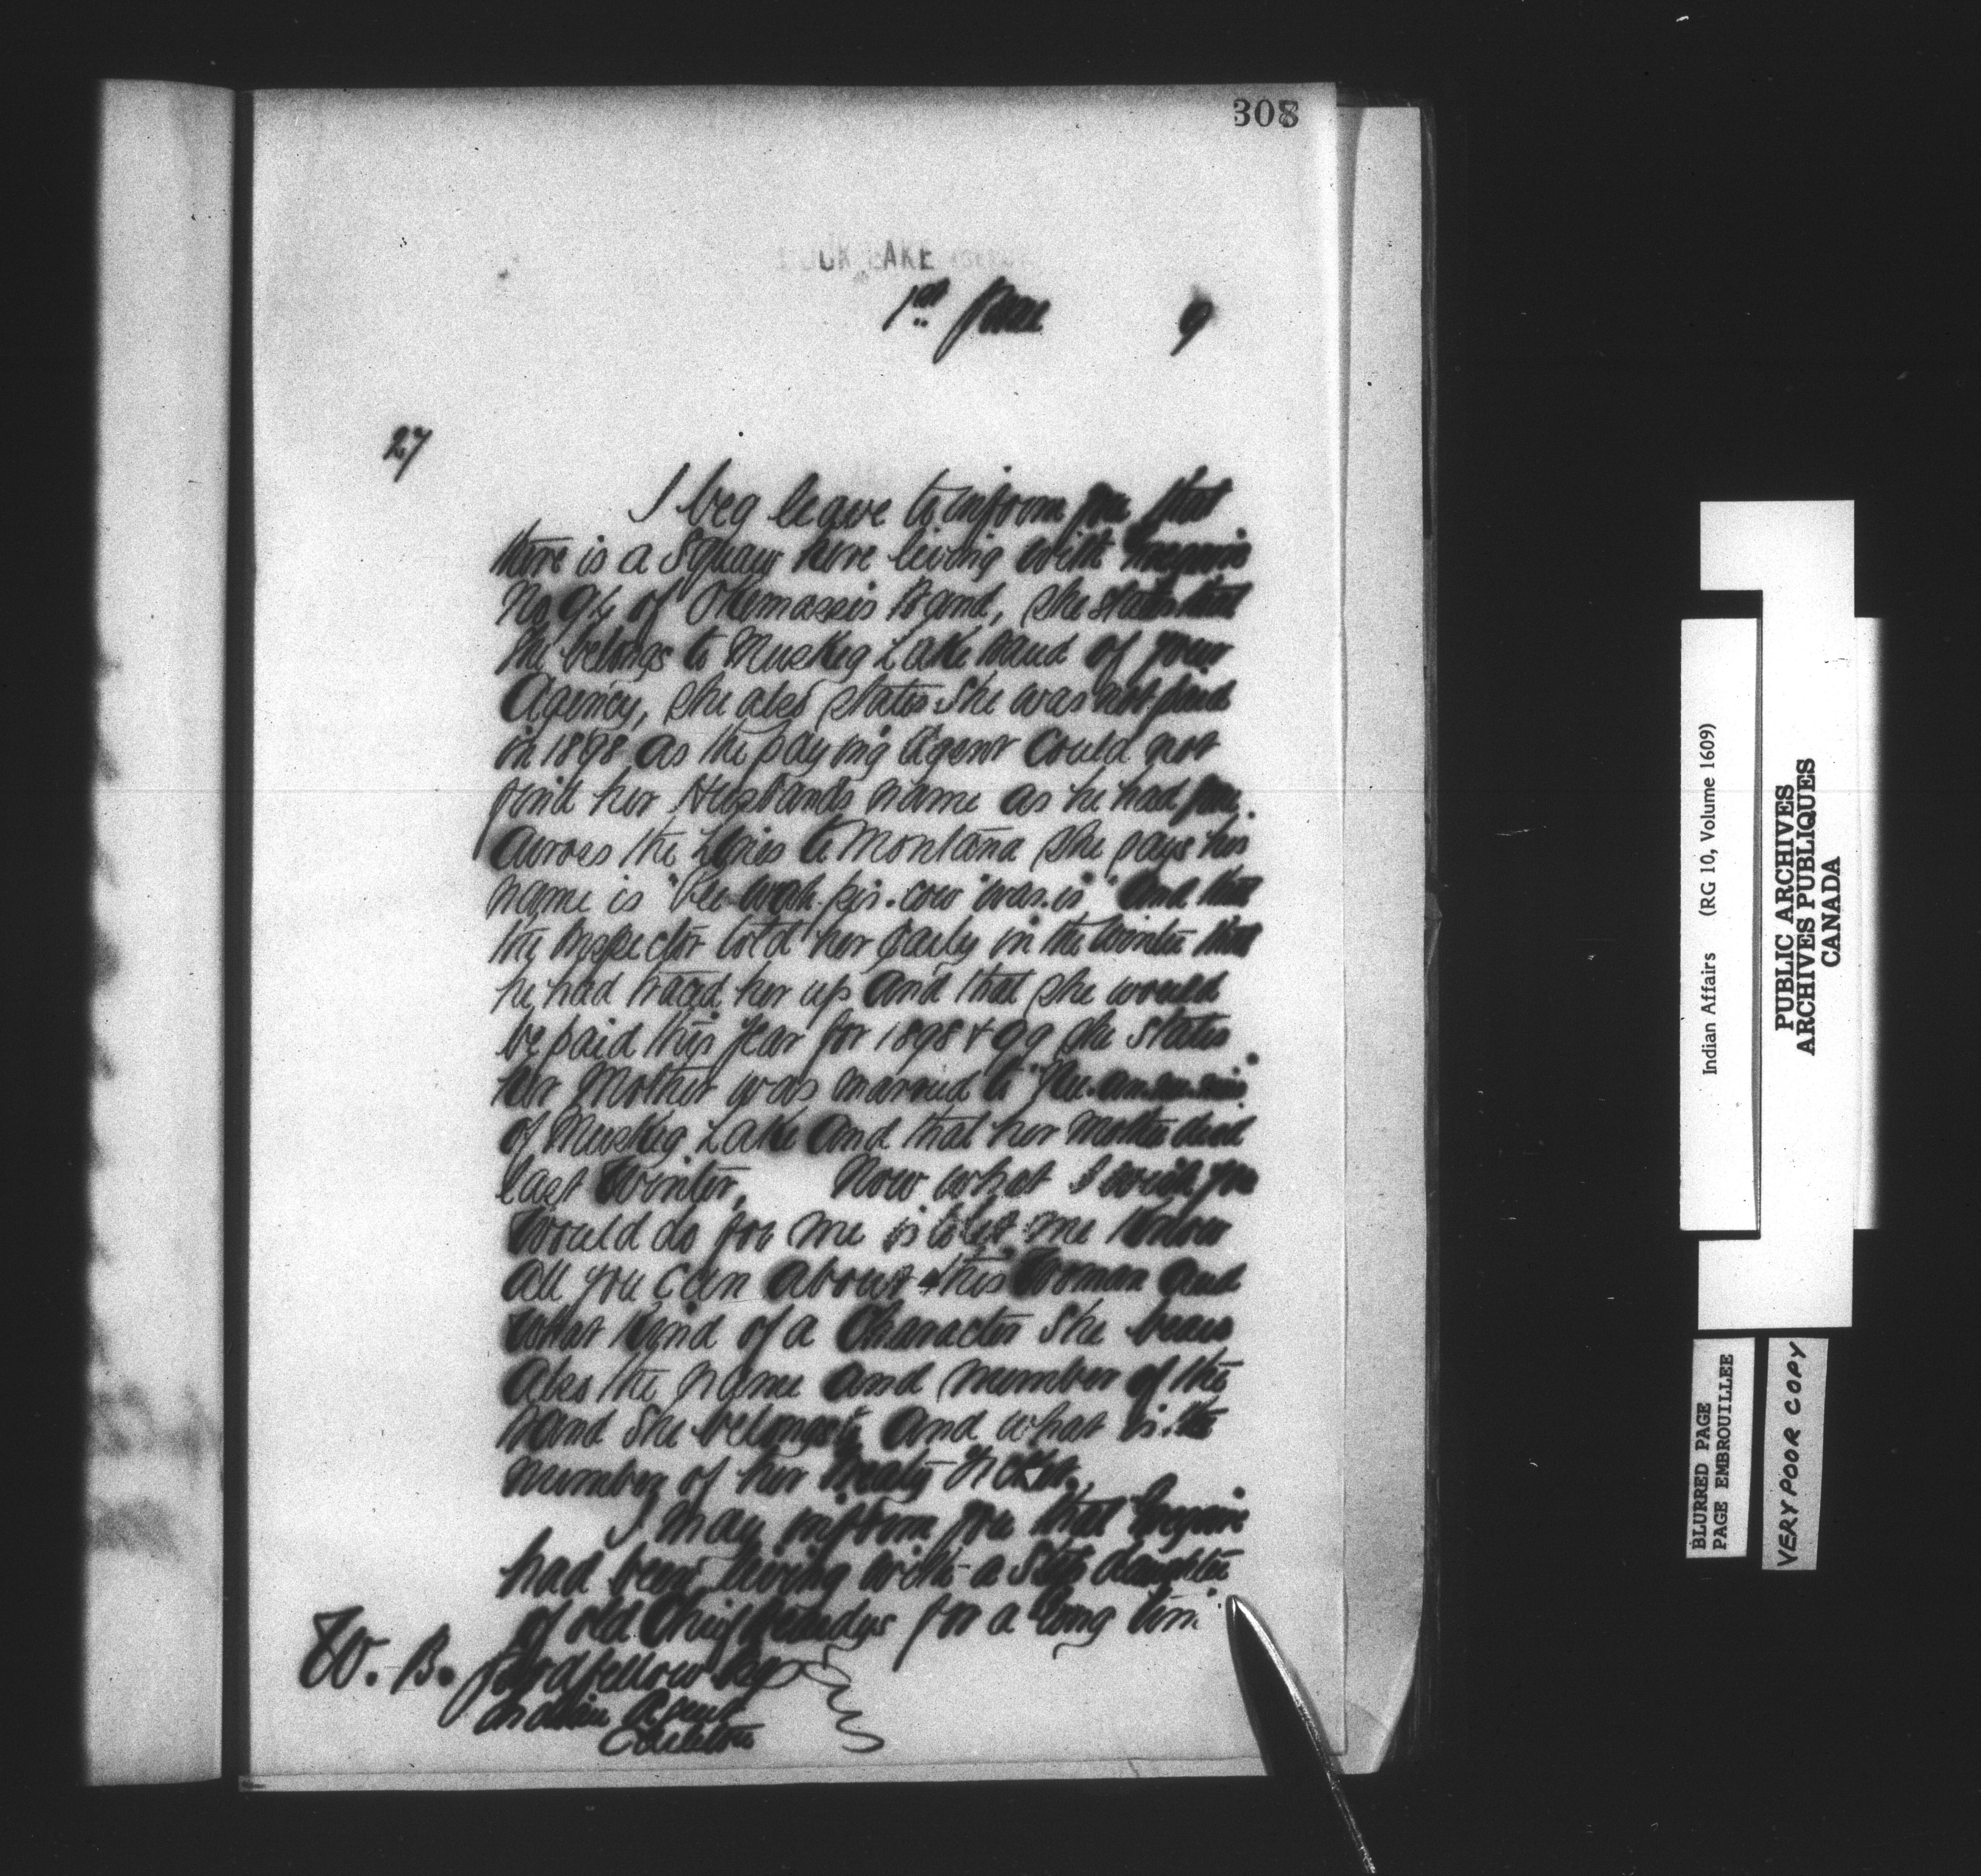 308
DUCK LAKE
1st June 9
27
I beg leave to inform you that
there is a Squaw here living with
No 94 of Okemassis Band, she states that
she belongs to Muskeg Lake Band of your
Agency, she also states she was not paid
in 1898 as the paying Agent could not
find her Husbands name as he had gone
across the Lines to Montana she says his
name is "Kee-wah-pis-cow-was-is" and that
the Inspector told her early in the Winter that
he had traced her up and that she would
be paid this year for 1898 & 99 she states
her Mother was married to
of Muskeg Lake and that her mother died
last Winter, Now what I wish you
would do for me is to let me know
all you can about this Woman and
what kind of a Character she bears
also the name and number of the
Band she belongs to and what is the
number of her Treaty Ticket.
I may inform you that
had been living with a Step daughter
of old Chief Beardys for a long time
W. B. Goodfellow Esq
Indian Agent
Carlton
Indian Affairs (RG 10, Volume 1609)
PUBLIC ARCHIVES
ARCHIVES PUBLIQUES
CANADA
BLURRED PAGE
PAGE EMBROUILLEE
VERY POOR COPY